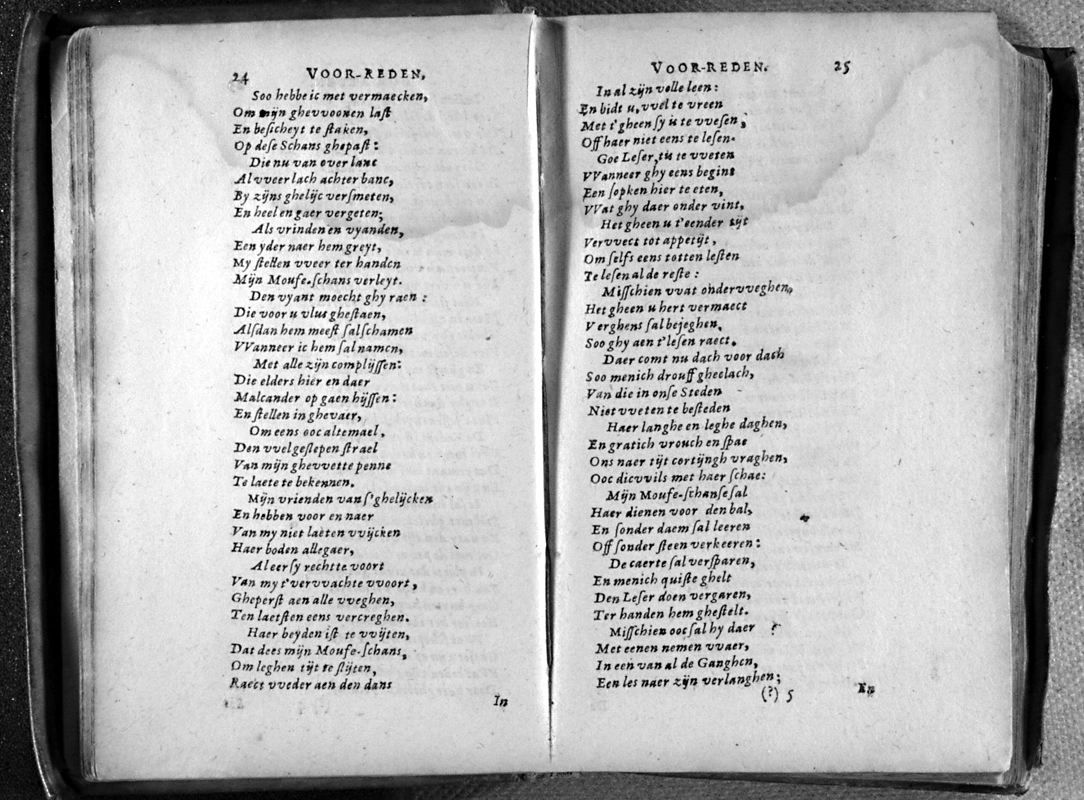 24 VOOR-REDEN.
Soo hebbe ic met vermaecken,
Om mijn ghevvoonen last
En besicheyt te staken,
Op dese Schans ghepast:
Die nu van over lanc
Al vveer lach achter banc,
By zijns ghelijc versmeten,
En heel en gaer vergeten;
Als vrinden en vyanden,
Een yder naer hem greyt,
My stellen vveer ter handen
Mijn Moufe-schans verleyt.
Den vyant moecht ghy raen :
Die voor u vlus ghestaen,
Alsdan hem meest sal schamen
VVanneer ic hem sal namen,
Met alle zijn complijssen:
Die elders hier en daer
Malcander op gaen hijssen:
En stellen in ghevaer,
Om eens ooc altemael,
Den vvelgeslepen strael
Van mijn ghevvette penne
Te laete te bekennen.
Mijn vrienden van s'ghelijcken
En hebben voor en naer
Van my niet laeten vvijcken
Haer boden allegaer,
Al eer sy rechtte voort
Van my t'vervvachte vvoort,
Gheperst aen alle vveghen,
Ten laetsten eens vercreghen.
Haer beyden ist te vvijten,
Dat dees mijn Moufe-schans,
Om leghen tijt te slijten,
Raect vveder aen den dans
In
VOOR-REDEN. 25
In al zijn volle leen:
En bidt u, vvel te vreen
Met t'gheen sy is te vvesen,
Off haer niet eens te lesen.
Goe Leser, tis te vveten
VVanneer ghy eens begint
Een sopken hier te eten,
VVat ghy daer onder vint,
Het gheen u t'eender tijt
Vervvect tot appetijt,
Om selfs eens totten lesten
Te lesen al de reste :
Misschien vvat ondervveghen,
Het gheen u hert vermaect
Verghens sal bejeghen,
Soo ghy aen t'lesen raect.
Daer comt nu dach voor dach
Soo menich drouff gheelach,
Van die in onse Steden
Niet vveten te besteden
Haer langhe en leghe daghen,
En gratich vrouch en spae
Ons naer tijt cortijngh vraghen,
Ooc dicvvils met haer schae:
Mijn Moufe-schanse sal
Haer dienen voor den bal,
En sonder daem sal leeren
Off sonder steen verkeeren:
De caerte sal versparen,
En menich quiste ghelt
Den Leser doen vergaren,
Ter handen hem ghestelt.
Misschien ooc sal hy daer
Met eenen nemen vvaer,
In een van al de Ganghen,
Een les naer zijn verlanghen;
(?) 5 En